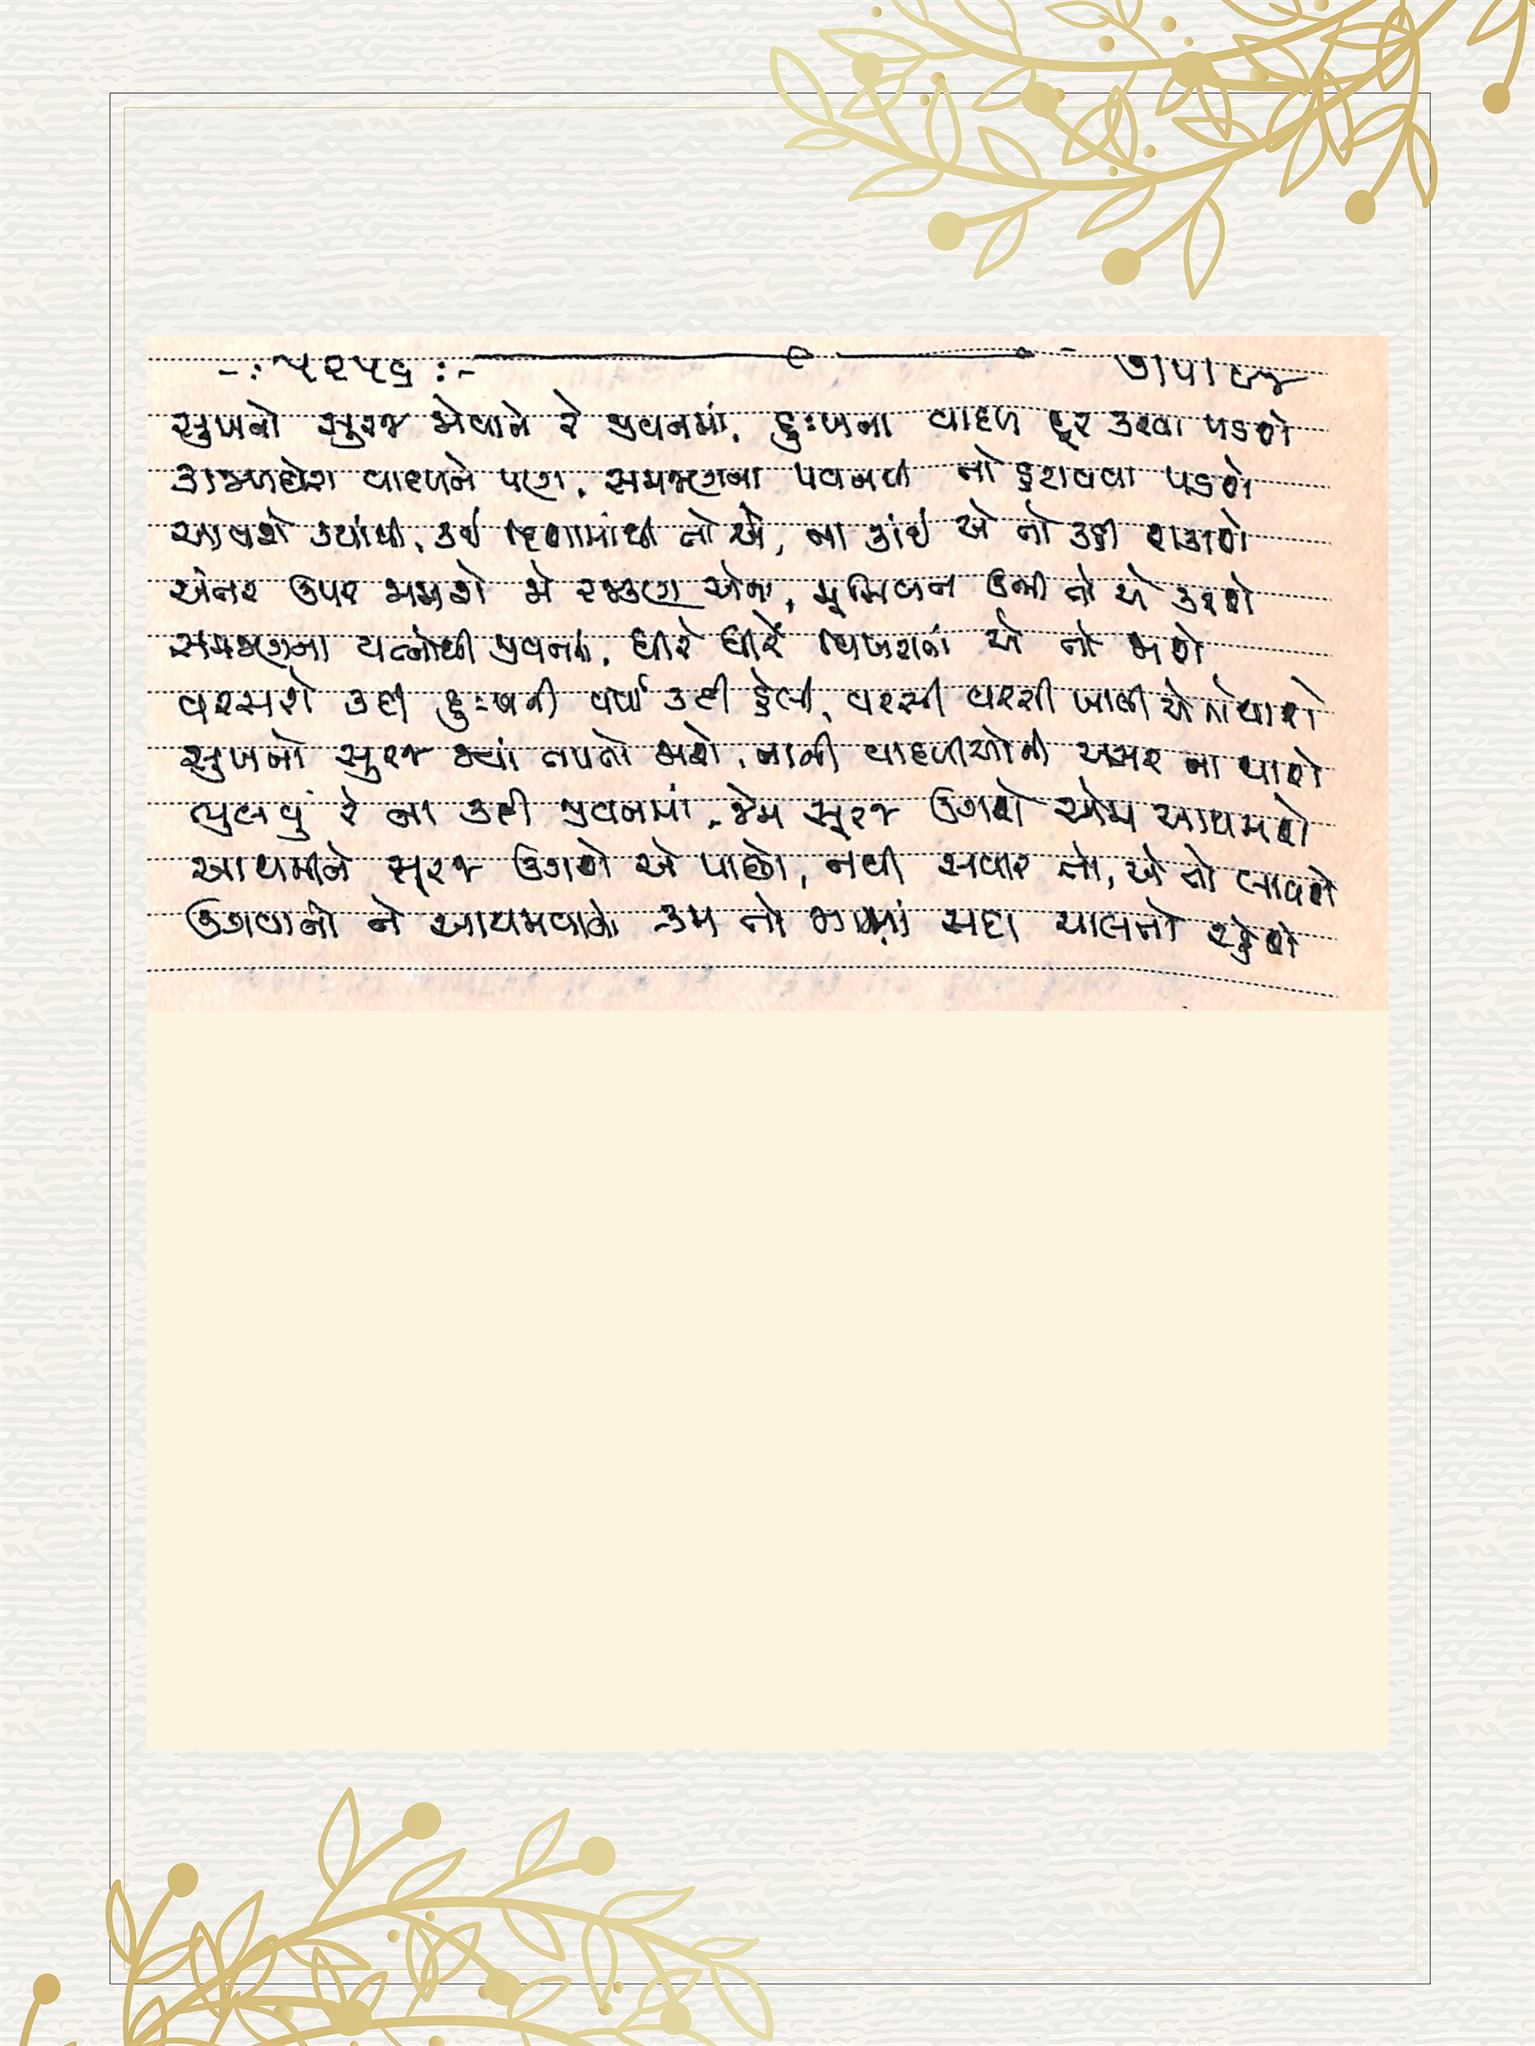 -: ૫૨૫૬ :-
સુખનો સુરજ જોવાને રે જીવનમાં, દુઃખના વાદળ દૂર કરવા પડશે
કાજળઘેરા વાદળને પણ, સમજણના પવનથી તો હટાવવા પડશે
આવશે ક્યાંથી, કઈ દિશામાંથી તો એ, ના કાંઈ એ તો કહી શકાશે
અંતર ઉપર જામશે જો રજકણ એના, મૂમિલન ઉભી તો એ કરશે
સમજણના યત્નોથી જીવનમાં, ધીરે ધીરે વિખરાતાં એ તો જાશે
વરસશે કદી દુઃખની વર્ષા કદી હેલી, વરસી વરસી ખાલી એ તો થાશે
સુખનો સુરજ જ્યાં તપતો જાશે, નાની વાદળીઓની અસર ના થાશે
ભુલવું રે ના કદી જીવનમાં, જેમ સૂરજ ઉગશે એમ આથમશે
આથમીને સૂરજ ઉગશે એ પાછો, નવી સવાર તો, એ તો લાવશે
ઉગવાનો ને આથમવાનો ક્રમ તો જગમાં સદા ચાલતો રહેશે